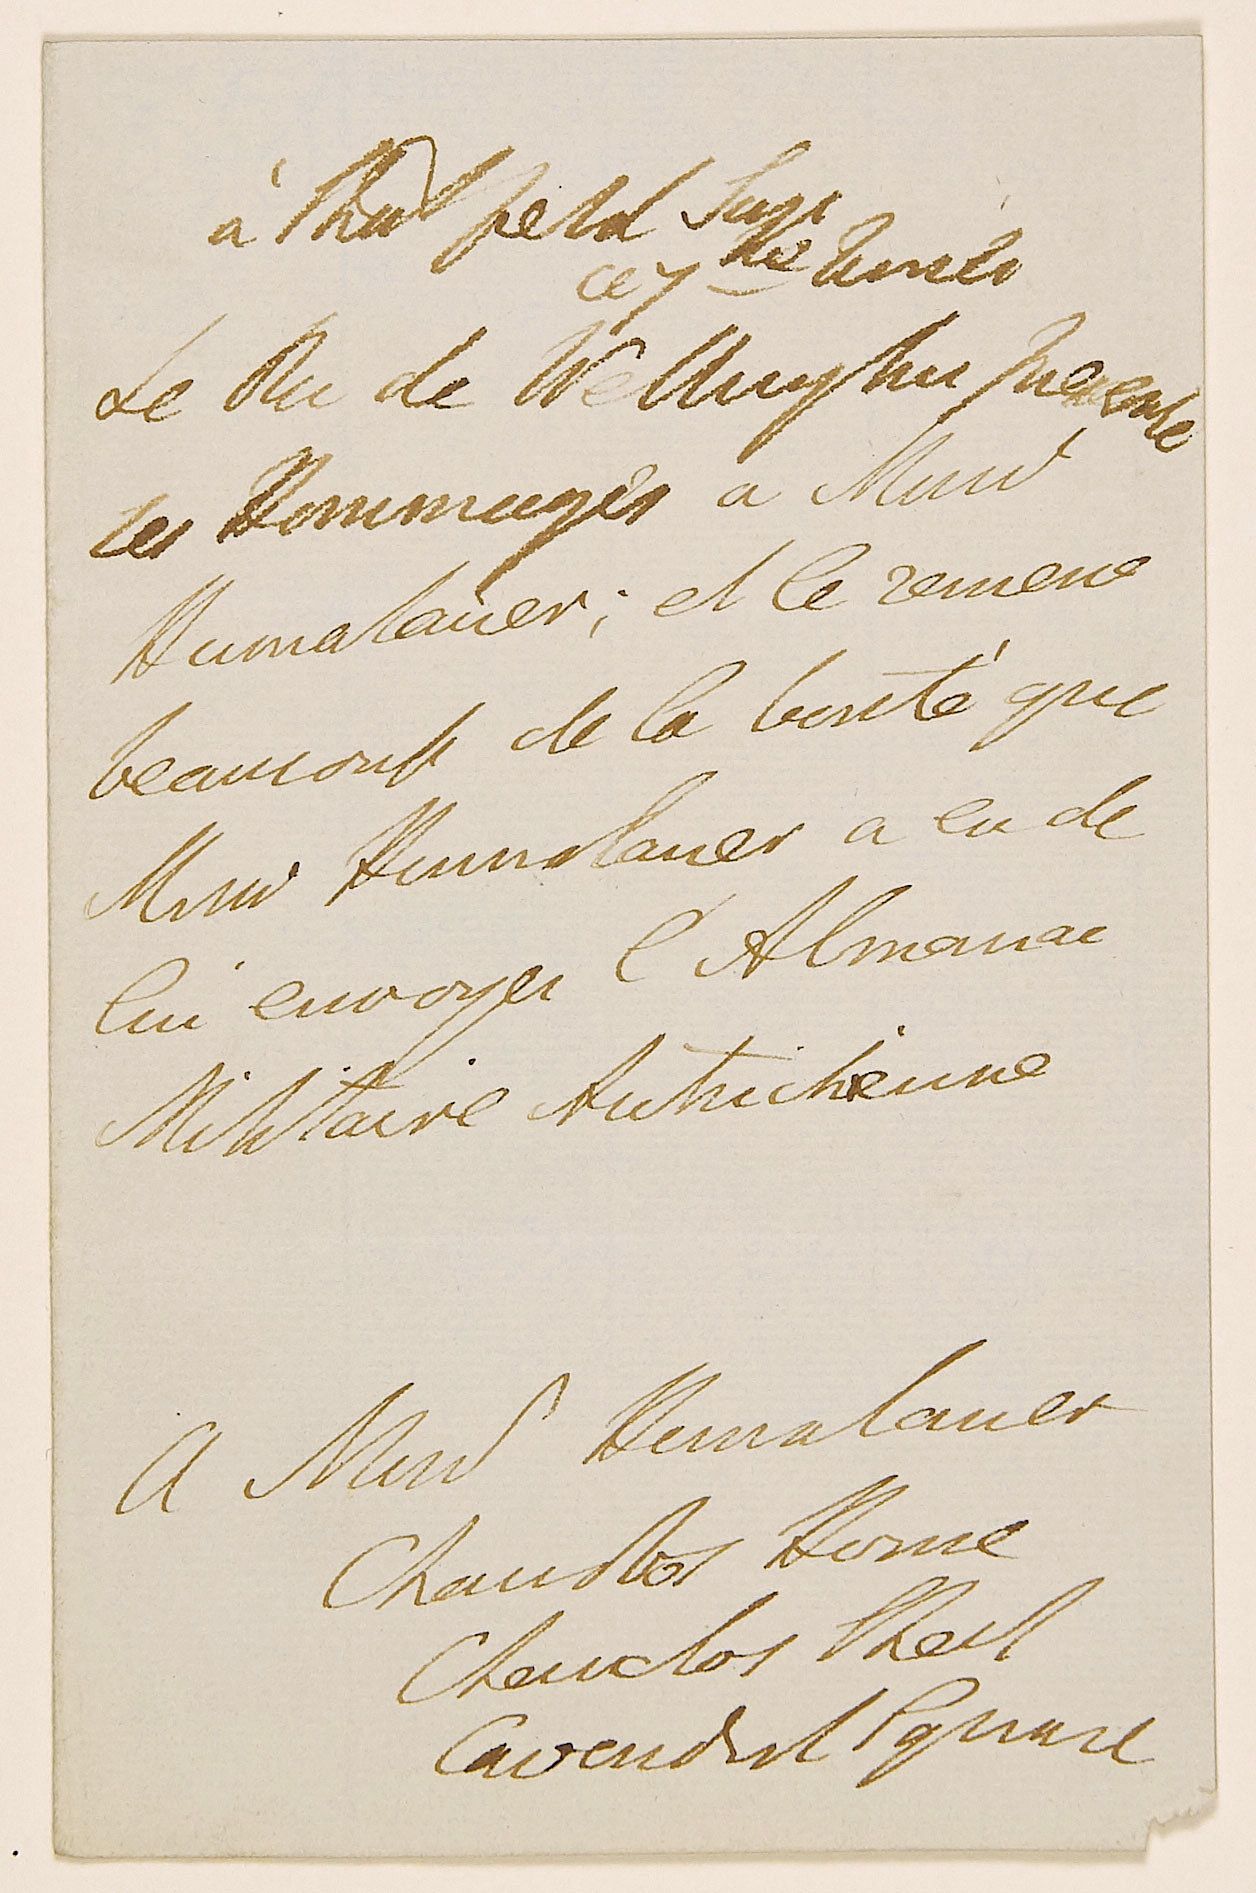 à Strathfieldsaye
ce 7 me
Le Duc de Wellington presente
ses Hommages a Monr
Hummelauer; et le remerce
beaucoup de la bonté que
Monr Hummelauer a eu de
lui envoyer l'Almanac
Militaire Autrichienne
A Monr Hummelauer
Chandos House
Chandos Street
Cavendish Square